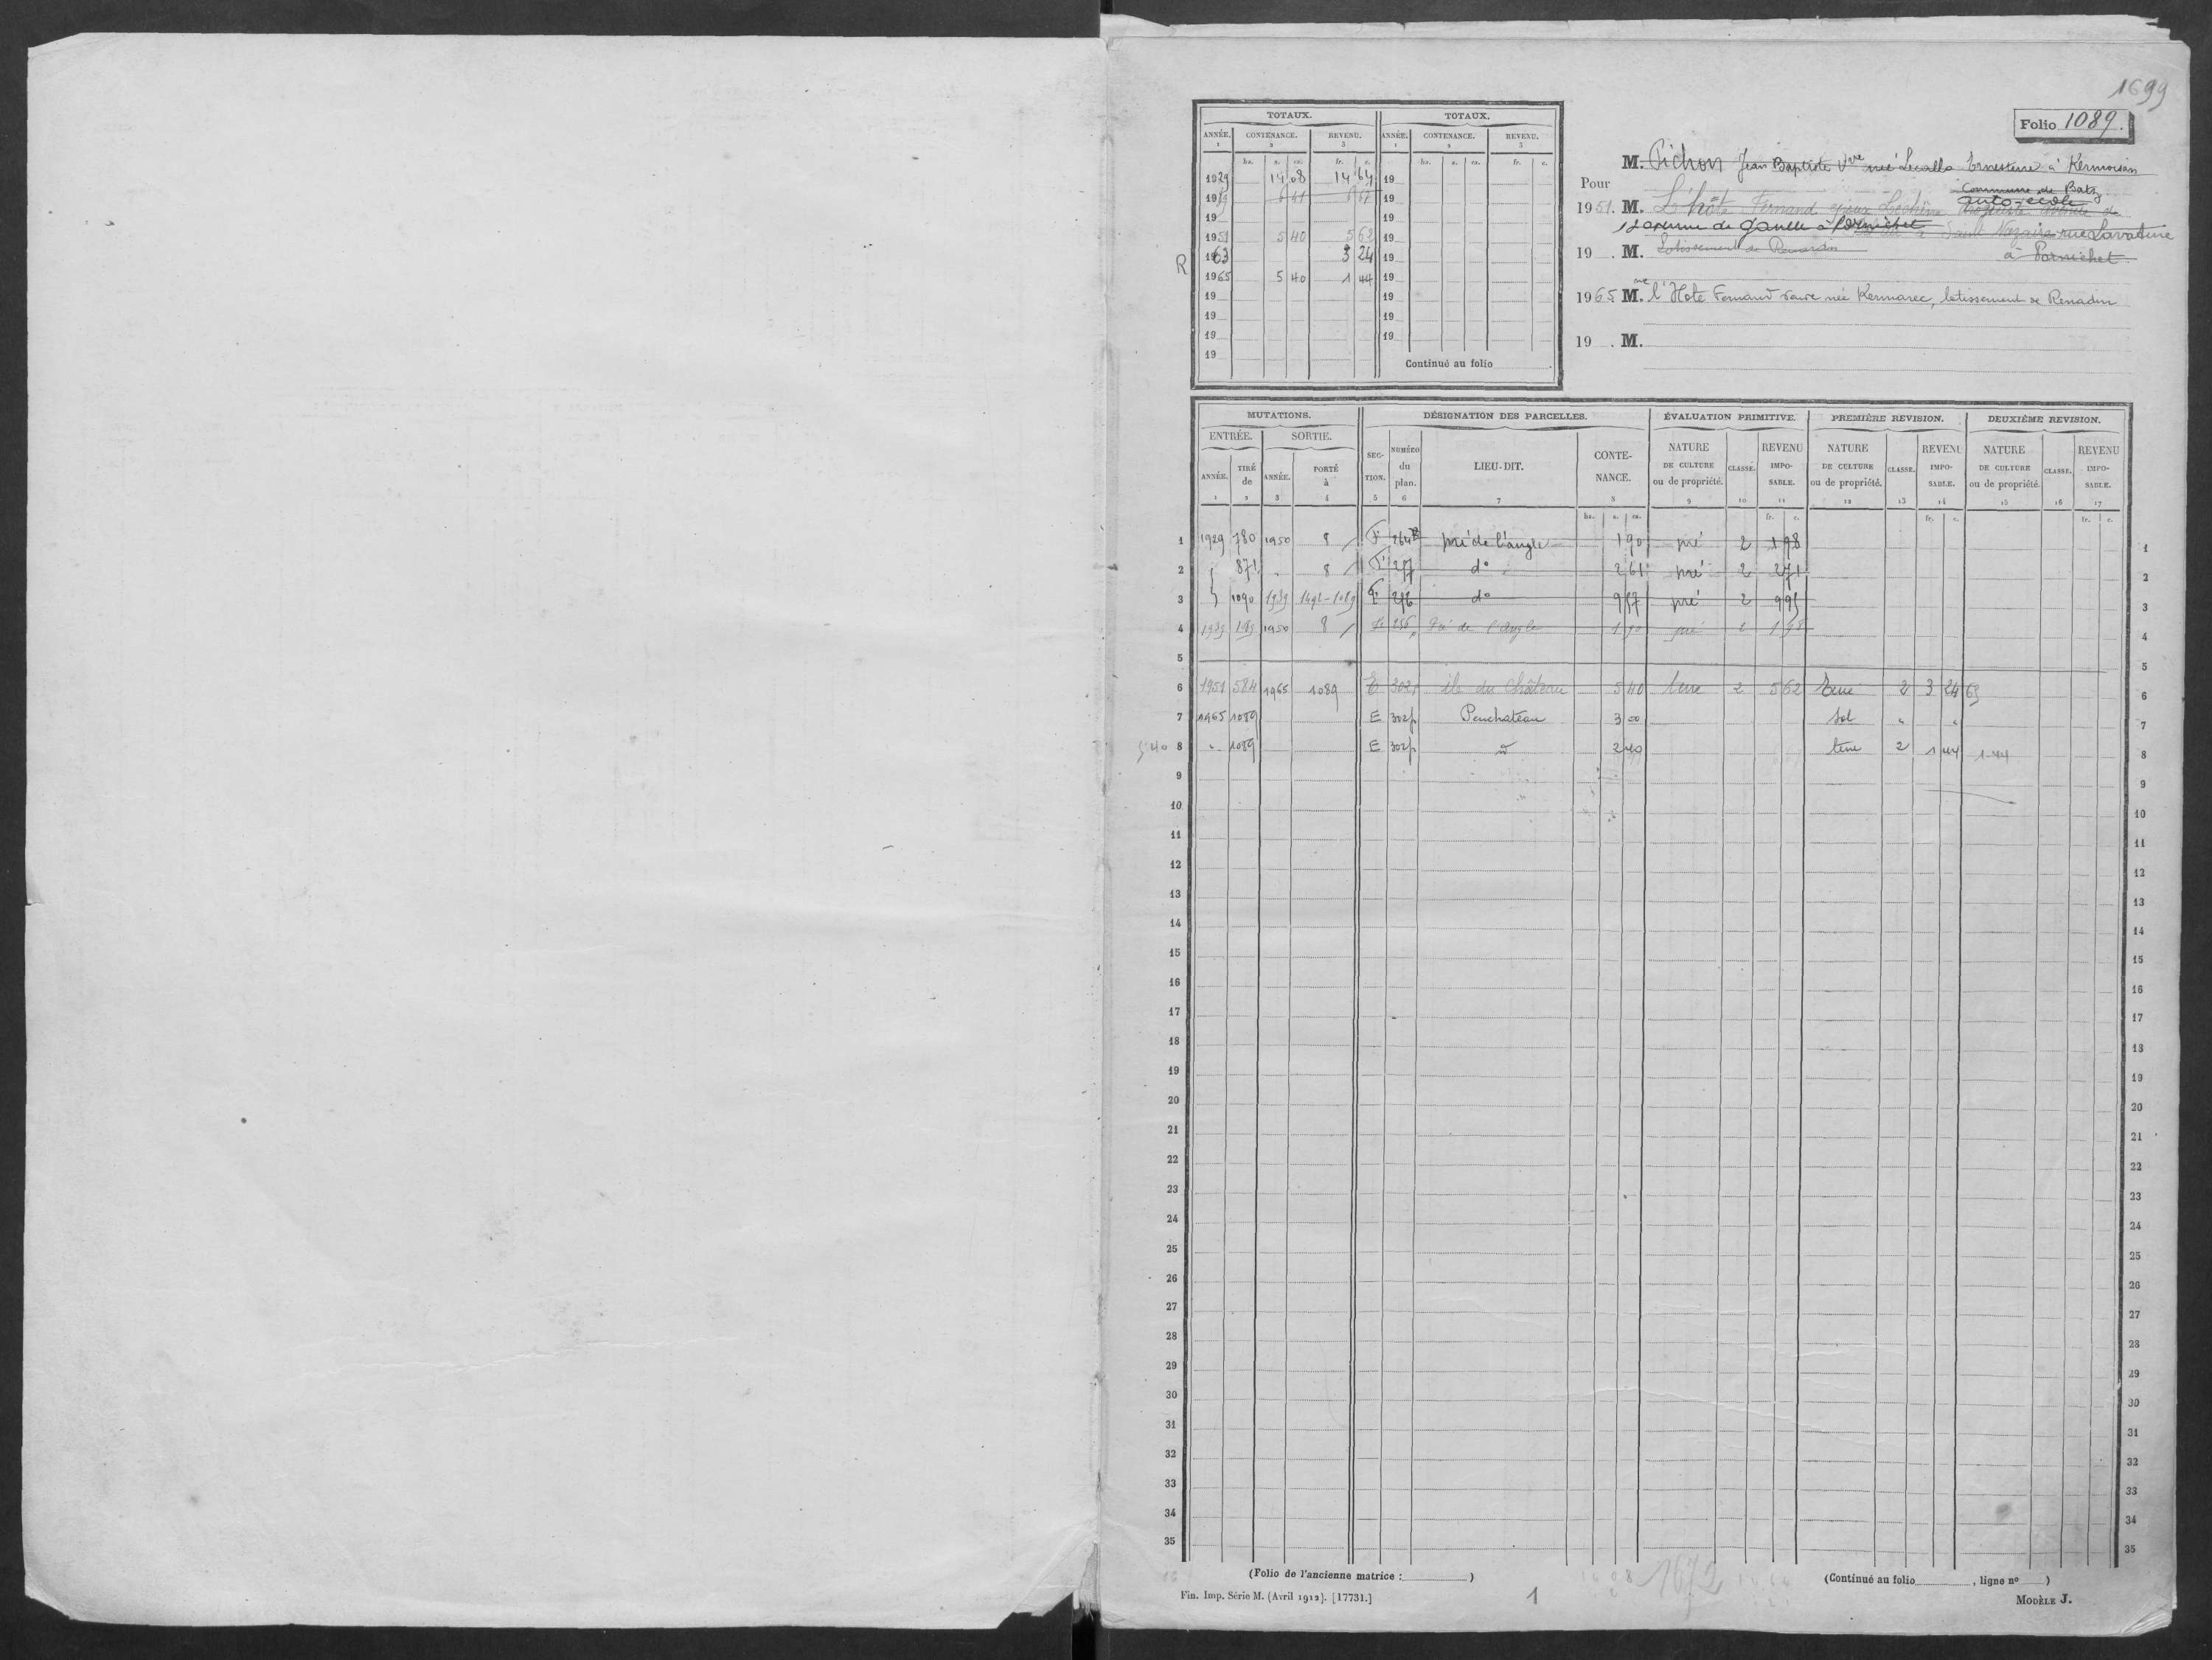 1699
Folio 1089.
TOTAUX. TOTAUX.
ANNÉE. CONTENANCE. REVENU. ANNÉE. CONTENANCE. REVENU.
1 2 3 1 2 3
ha. a. ca. fr. c. ha. a. ca. fr. c.
1929 14 08 14 64 19
19 19
19 19
1951 5 40 5 62 19
1963 3 24 19
R 1965 5 40 1 44 19
19 19
19 19
19 19
19
Continué au folio
M. Pichon Jean Baptiste Vve née Ernestine à Kermoisan
Commune de Batz
Pour
1951. M. L'hôte Fernand époux
auto-école
avenue de Gaulle à Pornichet Saint Nazaire rue Lavatine
19 . M. Lotissement de
à Pornichet
1965 Mme. l'Hote Fernand veuve née Kermarec, lotissement de Renadin
19 . M.
MUTATIONS. DÉSIGNATION DES PARCELLES. ÉVALUATION PRIMITIVE. PREMIÈRE REVISION. DEUXIÈME REVISION.
ENTRÉE. SORTIE.
ANNÉE. TIRÉ de ANNÉE. PORTÉ à SEC-TION. NUMÉRO du plan. LIEU-DIT. CONTE-NANCE. NATURE DE CULTURE ou de propriété. CLASSE. REVENU IMPO-SABLE. NATURE DE CULTURE ou de propriété. CLASSE. REVENU IMPO-SABLE. NATURE DE CULTURE ou de propriété. CLASSE. REVENU IMPO-SABLE.
1 2 3 4 5 6 7 8 9 10 11 12 13 14 15 16 17
ha. a. ca. fr. c. fr. c. fr. c.
1 1929 780 1950 8 F 264 pré de l'angle 1 90 pré 2 1 98 1
2 871 " 8 F 257 do 2 61 pré 2 2 71 2
3 1090 1939 1492-1089 F 256 do 9 57 pré 2 9 95 3
4 1939 1950 8 F 256p Pré de l'Angle 1 90 pré 2 1 98 4
5 5
6 1951 584 1965 1089 E 302p île du Château 5 40 terre 2 5 62 terre 2 3 24 63 6
7 1965 1089 E 302p Penchateau 3 00 sol " " 7
5 40 8 " 1089 E 302p do 2 40 terre 2 1 44 1.44 8
9 9
10 10
11 11
12 12
13 13
14 14
15 15
16 16
17 17
18 18
19 19
20 20
21 21
22 22
23 23
24 24
25 25
26 26
27 27
28 28
29 29
30 30
31 31
32 32
33 33
34 34
35 35
(Folio de l'ancienne matrice : ) 14 08 1672 14 64 (Continué au folio , ligne no )
Fin. Imp. Série M. (Avril 1912). [17731.] 1 MODÈLE J.